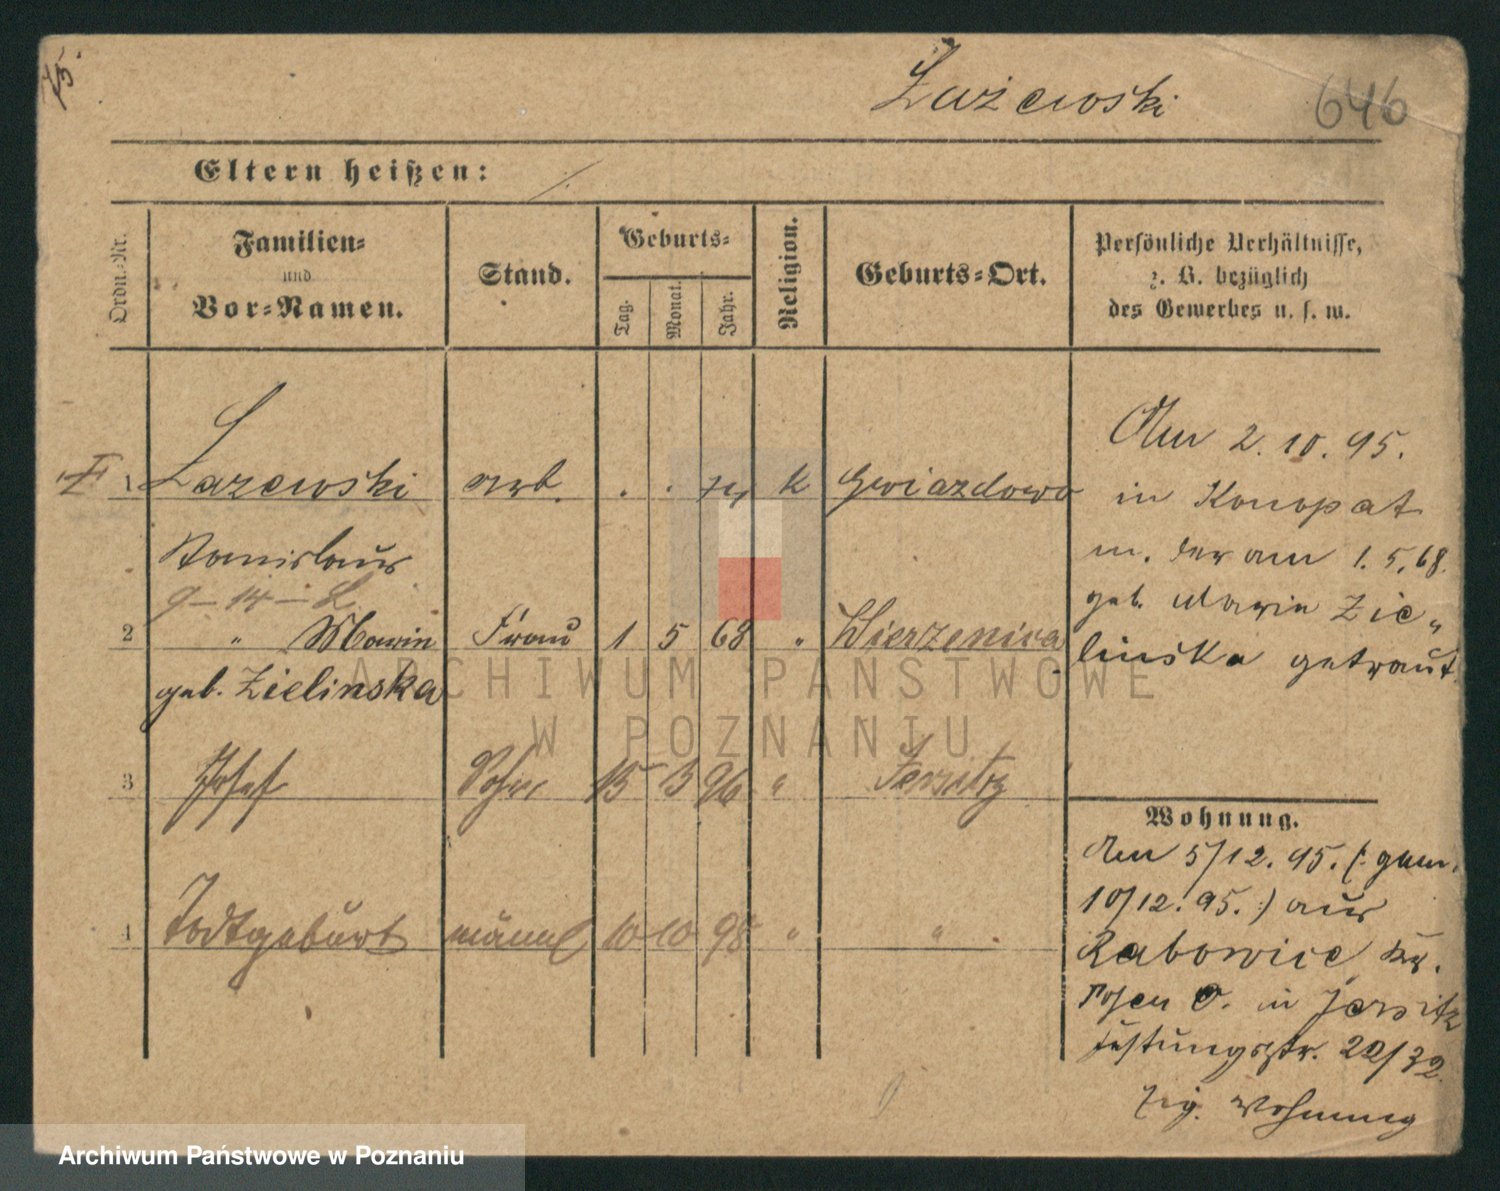 Łażewski
646
Eltern heißen:
Ordn.-Nr.
Familien-
und
Vor-Namen.
Stand.
Geburts-
Tag.
Monat.
Jahr.
Religion.
Geburts-Ort.
Persönliche Verhältnisse,
z. B. bezüglich
des Gewerbes u. s. w.
1 Lazewski arb. . . 74 k Gwiazdowo
Stanislaus
2 " Marie Frau 1 5 68 " Wierzenica
geb. Zielinska
3 Josef Sohn 15 3 96 " Jersitz
4 Todtgeburt männl 10 10 98 " "
Am 2. 10. 95.
in Konopat
m. der am 1. 5. 68.
geb. Marie Zie-
linska getraut.
Wohnung.
Am 5/12. 95. (: gem.
10/12. 95. :) aus
Rabowice Kr.
Posen O. in Jersitz
Festungsstr. 22/32
Zig. Wohnung
ARCHIWUM PAŃSTWOWE
W POZNANIU
Archiwum Państwowe w Poznaniu